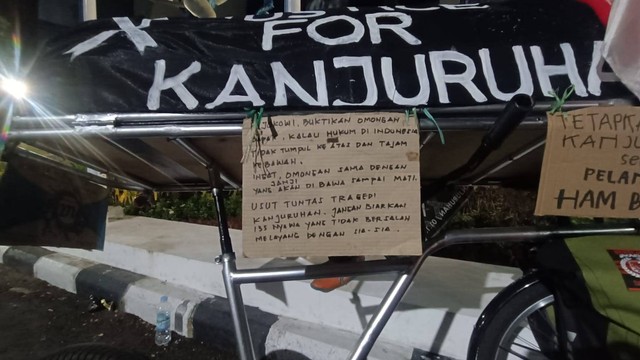 FOR
KANJURUHA
JOKOWI, BUKTIKAN OMONGAN
BAPAK, KALAU HUKUM DI INDONESIA
TIDAK TUMPUL KE ATAS DAN TAJAM
KEBAWAH.
INGAT, OMONGAN SAMA DENGAN
JANJI
YANG AKAN DI BAWA SAMPAI MATI.
USUT TUNTAS TRAGEDI
KANJURUHAN. JANGAN BIARKAN
135 NYAWA YANG TIDAK BERSALAH
MELAYANG DENGAN SIA-SIA.
TETAPKA
KANJU
SE
PELAN
HAM B